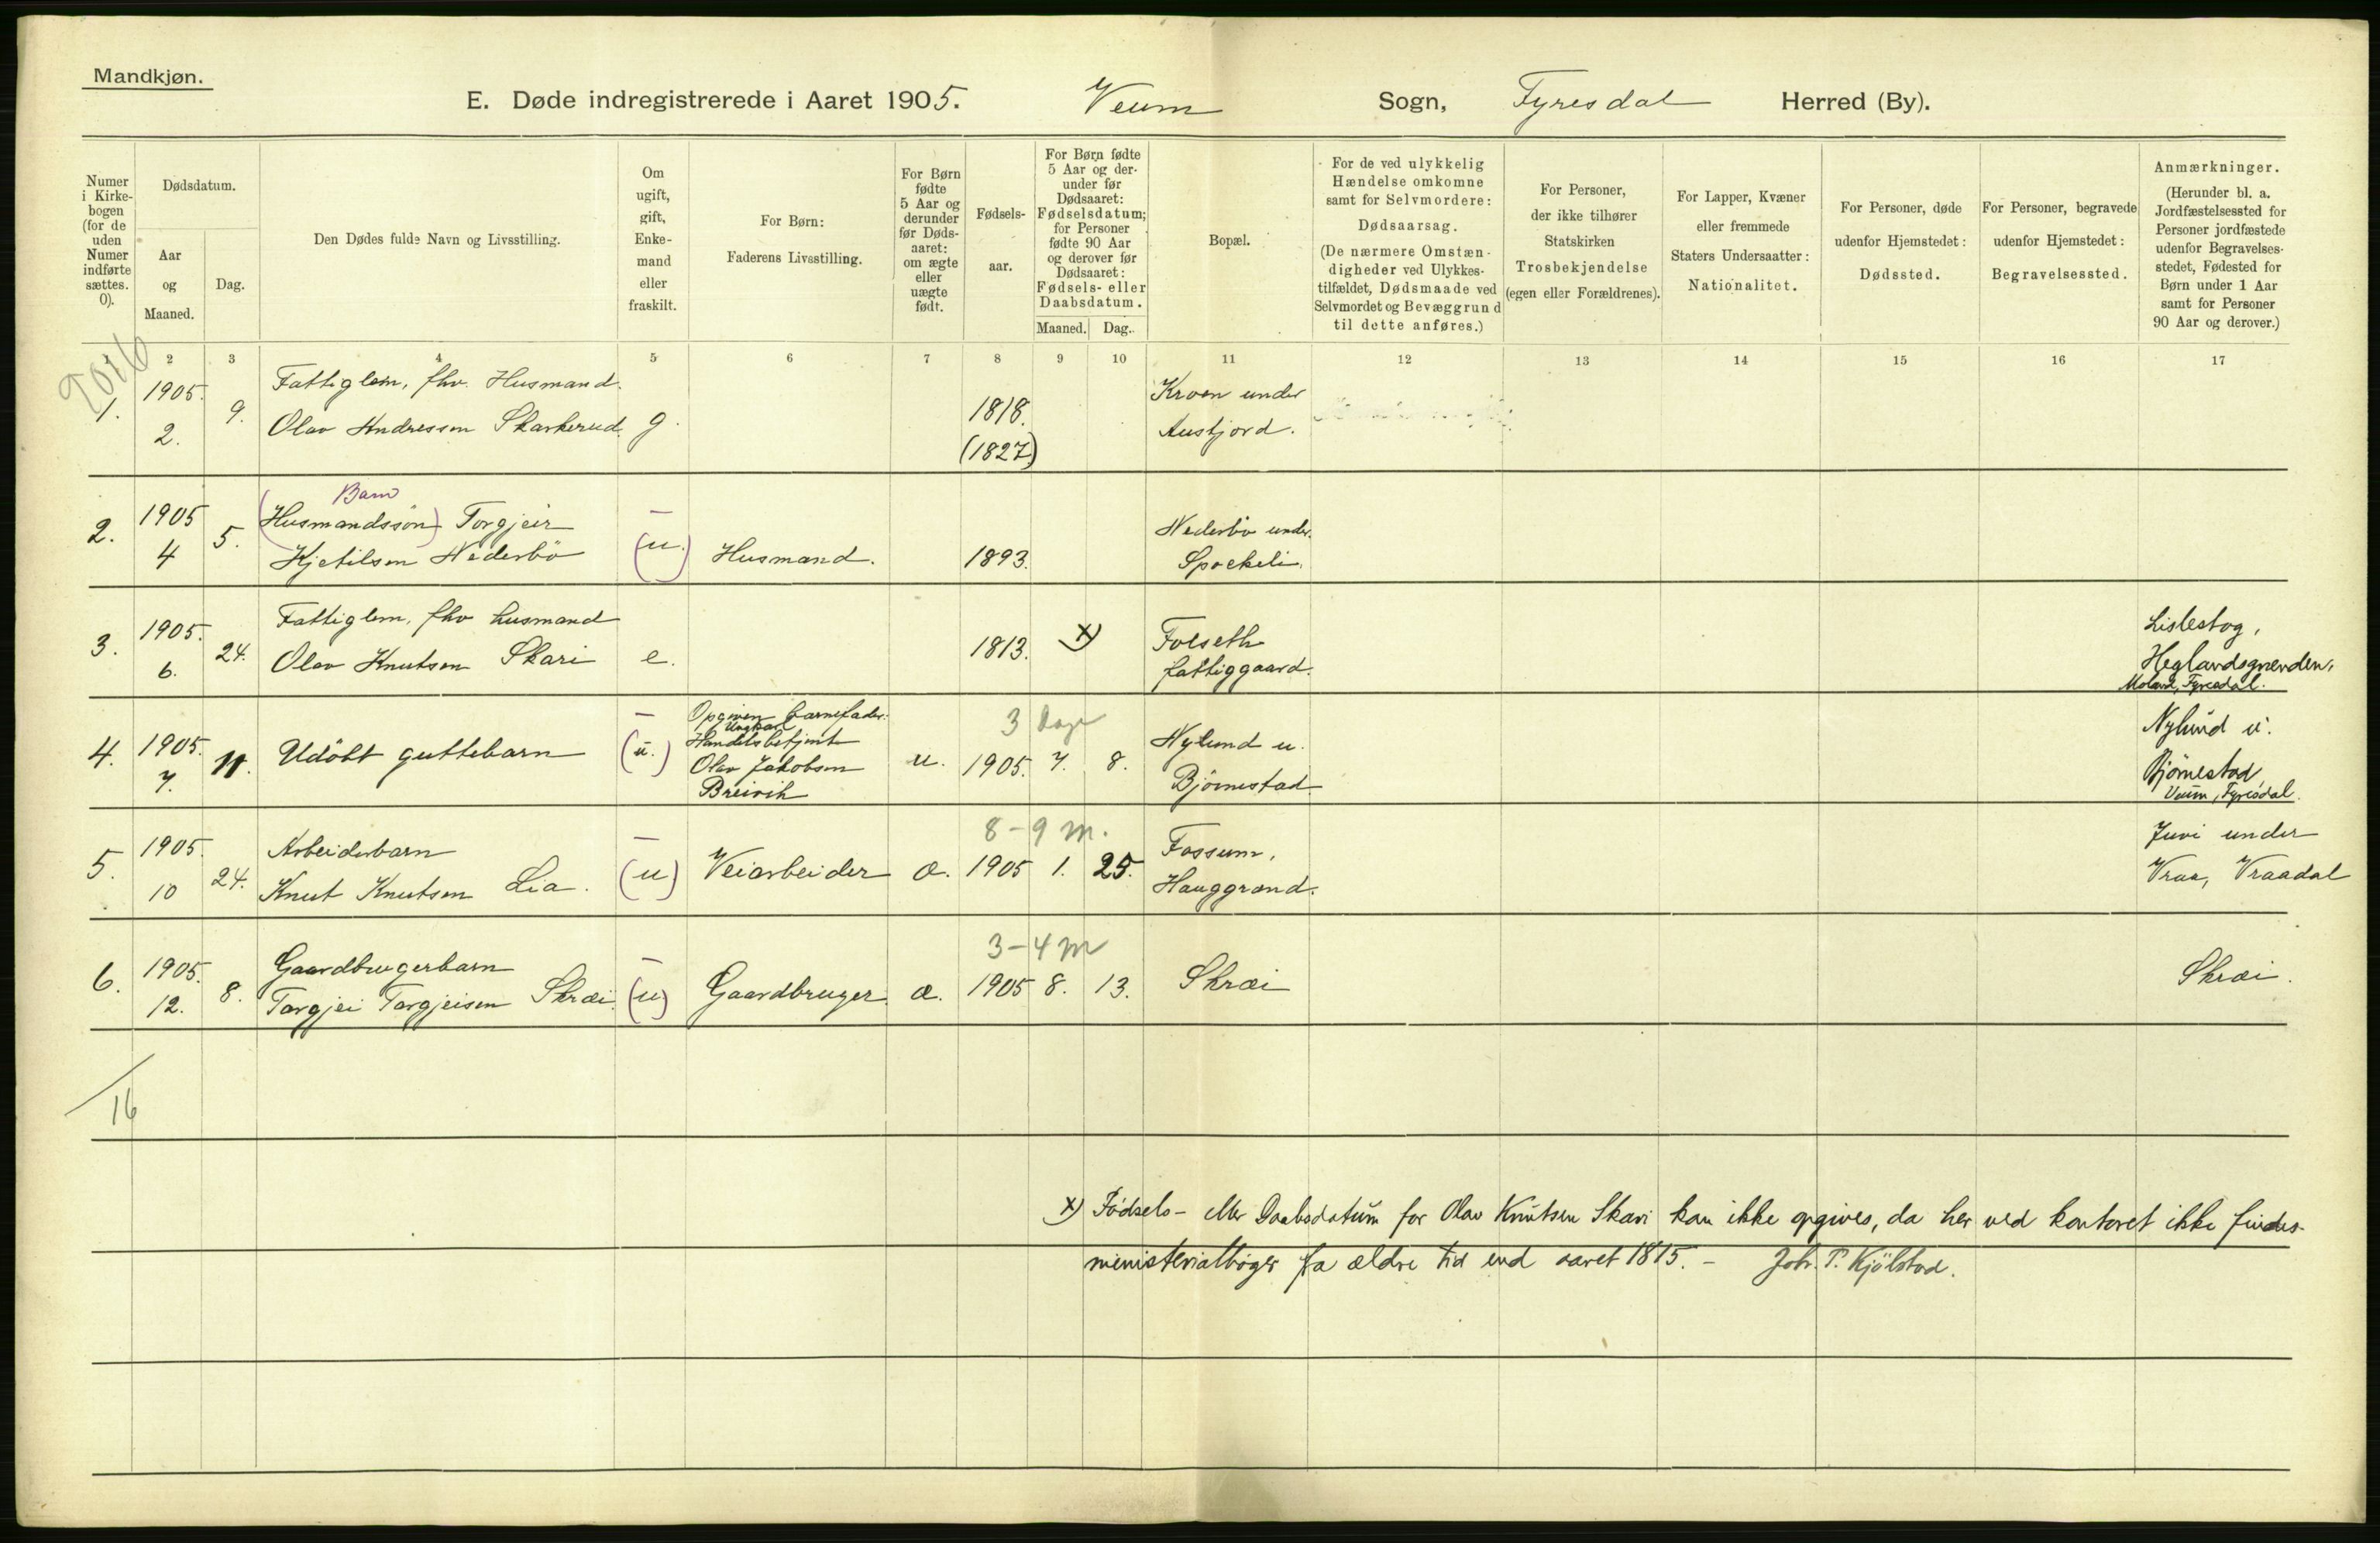 Mandkjøn.
E. Døde indregistrerede i Aaret 1905. Veum Sogn, Fyresdal Herred (By).
Numer i Kirke-bogen (for de uden Numer indførte sættes. 0).
Dødsdatum.
Aar og Maaned.
Dag.
Den Dødes fulde Navn og Livsstilling.
Om ugift, gift, Enke-mand eller fraskilt.
For Børn:
Faderens Livsstilling.
For Børn fødte 5 Aar og derunder før Døds-aaret: om ægte eller uægte født.
Fødsels-aar.
For Børn fødte 5 Aar og der-under før Dødsaaret: Fødselsdatum; for Personer fødte 90 Aar og derover før Dødsaaret: Fødsels- eller Daabsdatum.
Maaned. Dag.
Bopæl.
For de ved ulykkelig Hændelse omkomne samt for Selvmordere:
Dødsaarsag.
(De nærmere Omstæn-digheder ved Ulykkes-tilfældet, Dødsmaade ved Selvmordet og Bevæggrund til dette anføres.)
For Personer, der ikke tilhører Statskirken
Trosbekjendelse
(egen eller Forældrenes).
For Lapper, Kvæner eller fremmede Staters Undersaatter:
Nationalitet.
For Personer, døde udenfor Hjemstedet:
Dødssted.
For Personer, begravede udenfor Hjemstedet:
Begravelsessted.
Anmærkninger.
(Herunder bl. a. Jordfæstelsessted for Personer jordfæstede udenfor Begravelses-stedet, Fødested for Børn under 1 Aar samt for Personer 90 Aar og derover.)
2 3 4 5 6 7 8 9 10 11 12 13 14 15 16 17
1. 1905. 2. 9. Fattiglem, fhv. Husmand.
Olav Andressen Skarkerud. g. 1818. (1827) Kroen under
Austjord.
2. 1905 4 5. (Husmandssøn) Barn Torgjeir
Kjetilsen Nederbö (u.) — Husmand. 1893. Nederbö under
Spockeli.
3. 1905. 6. 24. Fattiglem, fhv husmand
Olav Knutsen Skari e. 1813. x) Folseth
fattiggaard. Lislestog,
Heglandsgrenden,
Moland, Fyresdal.
4. 1905. 7. 11. Udöbt guttebarn — (u.) Opgiven barnefader:
Ungkar
Handelsbetjent
Olav Jakobsen
Breivik u. 3 Dage
1905. 7. 8. Nylund u.
Björnestad Nylund u.
Björnestad
Veum, Fyresdal.
5. 1905. 10 24. Arbeiderbarn
Knut Knutsen Lia. — (u) Veiarbeider æ. 8-9 M.
1905 1. 25. Fossum,
Hauggrand. Juvi under
Vraa, Vraadal
6. 1905. 12. 8. Gaardbrugerbarn
Torgjei Torgjeisen Skræi. — (u) Gaardbruger. æ. 3-4 M
1905 8. 13. Skræi Skræi.
16
x) Fødsels- eller Daabsdatum for Olav Knutsen Skari kan ikke opgives, da her ved kontoret ikke findes
ministerialbøger fra ældre tid end aaret 1815. – Joh. P. Kjölstad.